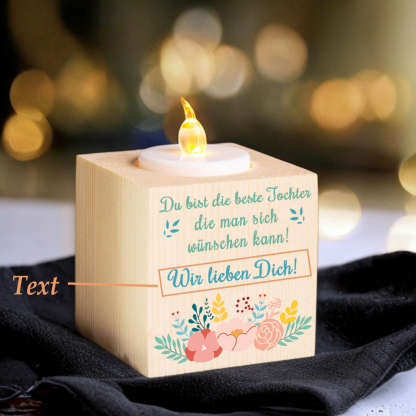 Du bist die beste Tochter
die man sich
wünschen kann!
Wir lieben Dich!
Text